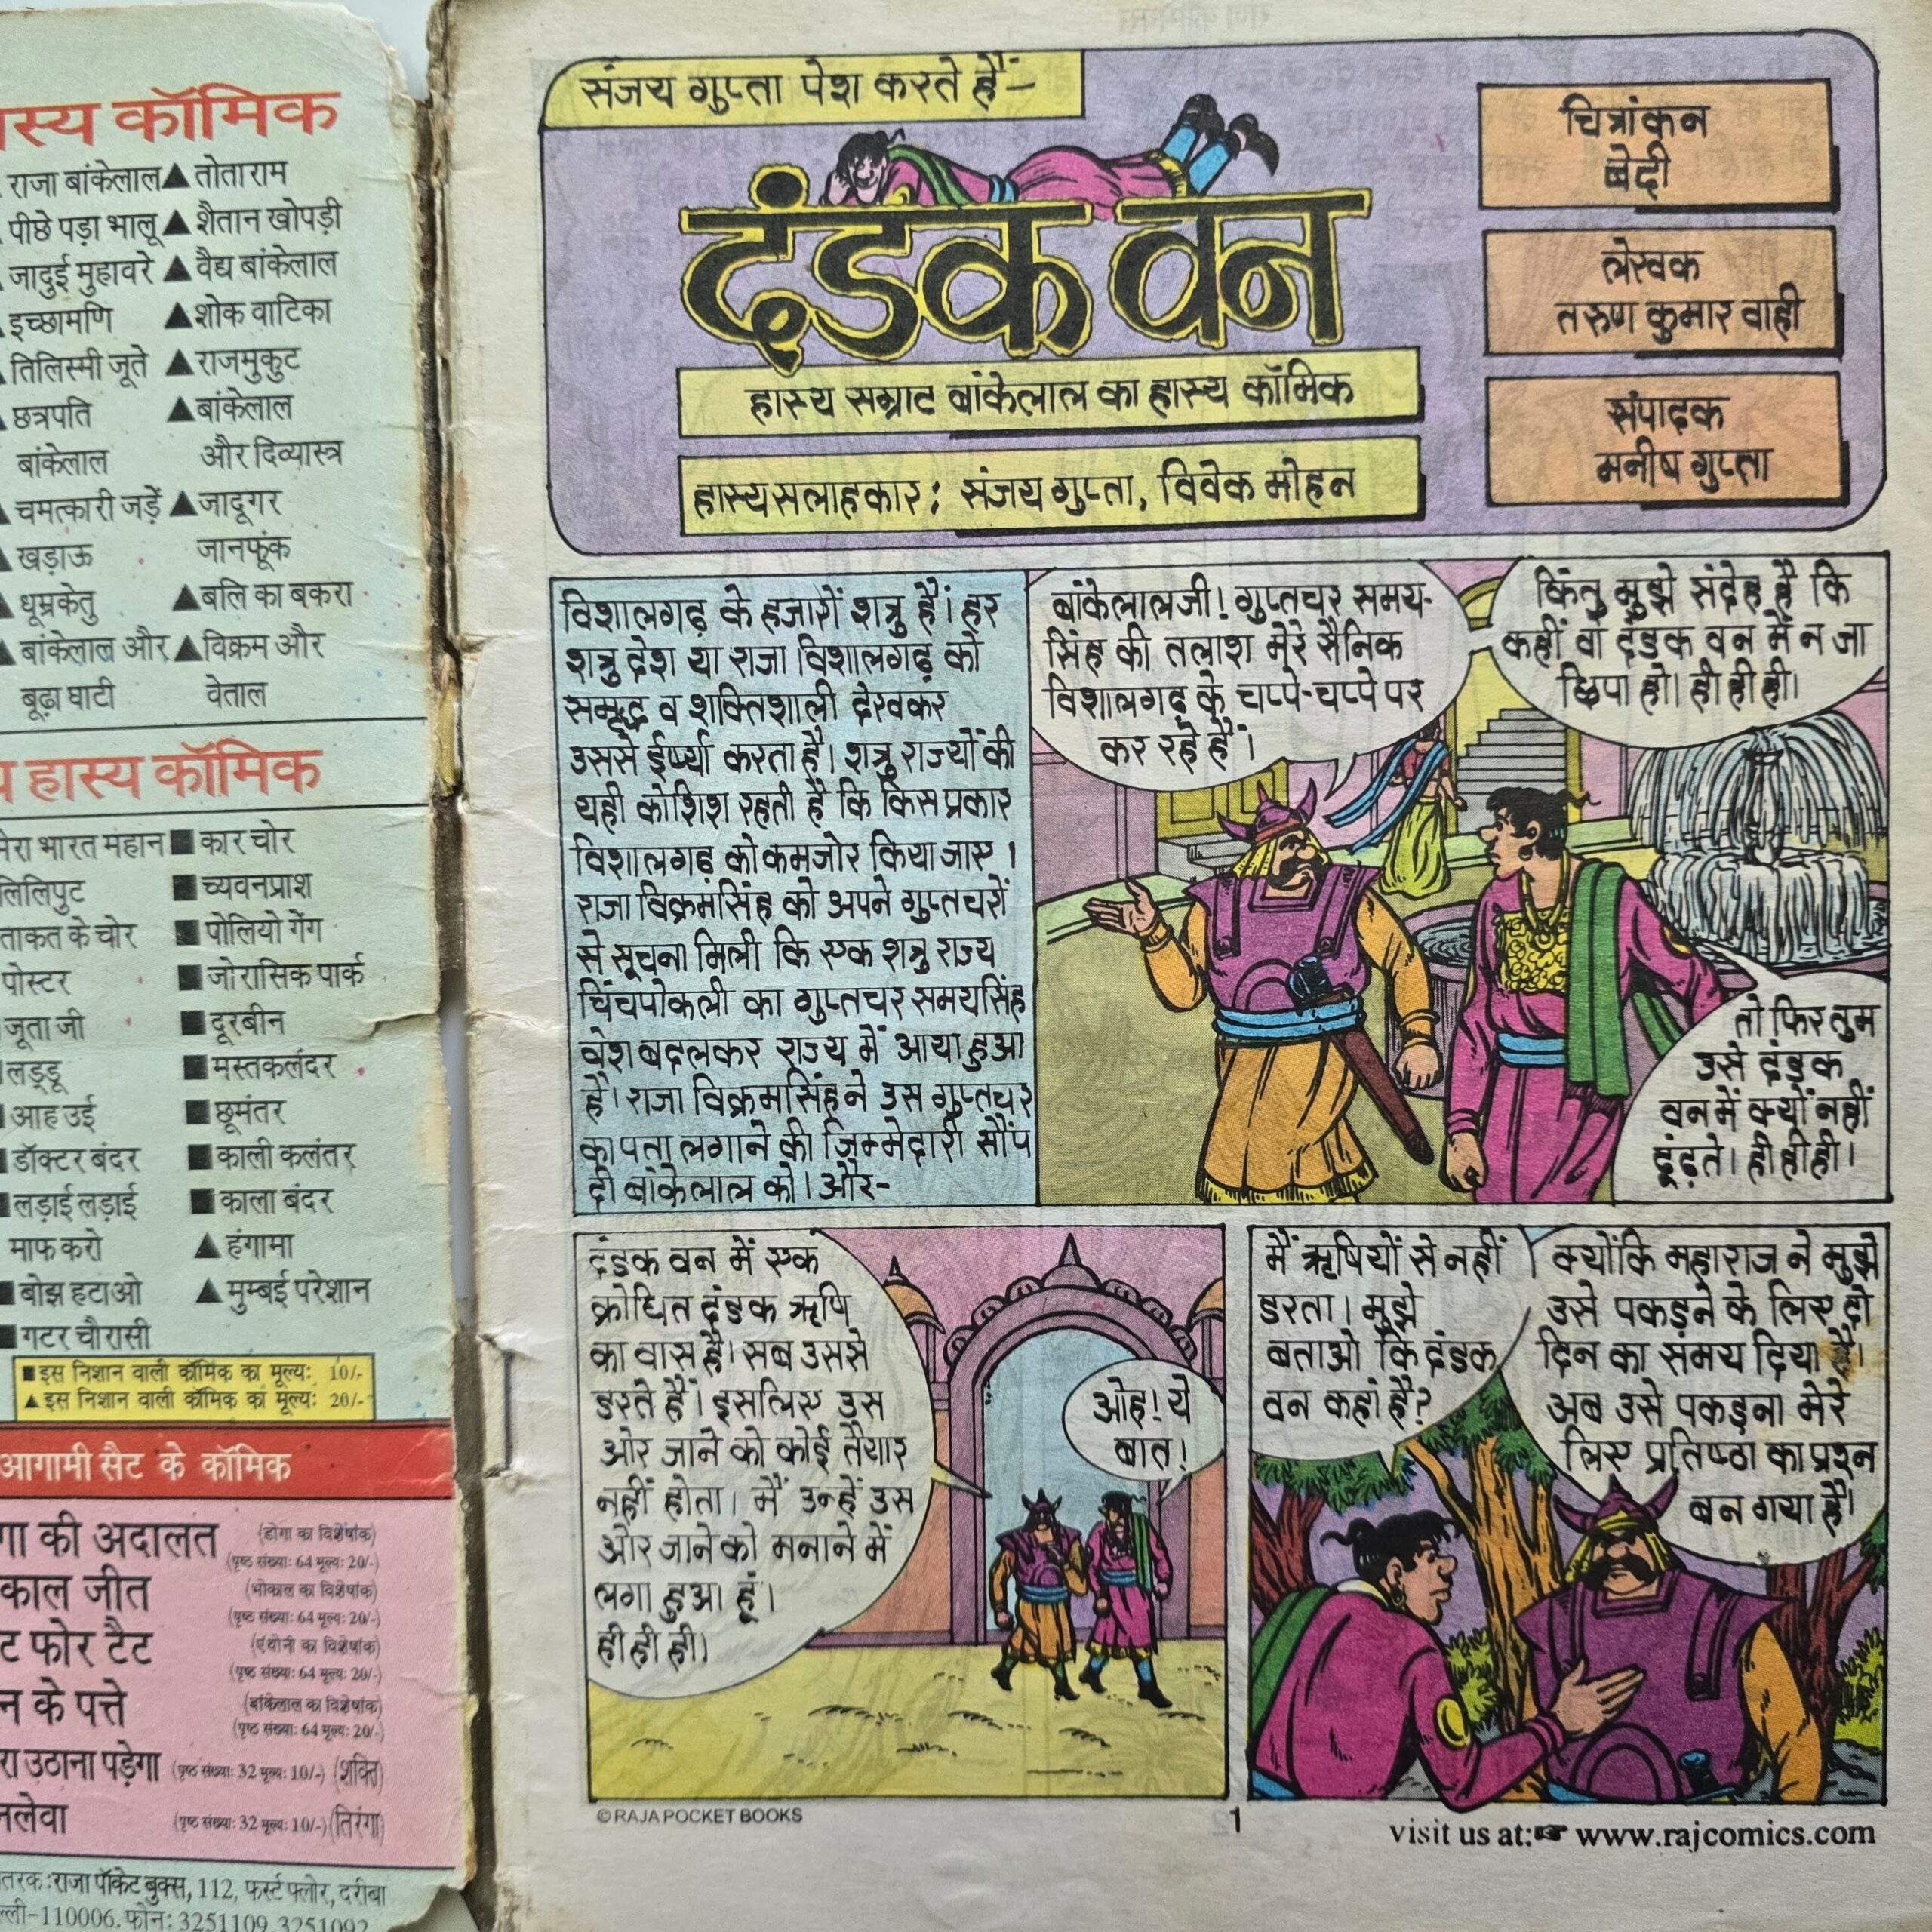 कॉमिक
राजा बांकेलाल ▲ तोताराम
पीछे पड़ा भालू ▲ शैतान खोपड़ी
जादुई मुहावरे ▲ वैद्य बांकेलाल
इच्छामणि ▲ शोक वाटिका
तिलिस्मी जूते ▲ राजमुकुट
छत्रपति ▲ बांकेलाल
बांकेलाल और दिव्यास्त्र
चमत्कारी जड़ें ▲ जादूगर
▲ खड़ाऊ जानफूंक
▲ धूम्रकेतु ▲ बलि का बकरा
▲ बांकेलाल और ▲ विक्रम और
बूढ़ा घाटी वेताल
हास्य कॉमिक
मेरा भारत महान ■ कार चोर
लिलिपुट ■ च्यवनप्राश
ताकत के चोर ■ पोलियो गेंग
पोस्टर ■ जोरासिक पार्क
जूता जी ■ दूरबीन
लड्डू ■ मस्तकलंदर
आह उई ■ छूमंतर
■ डॉक्टर बंदर ■ काली कलंतर
■ लड़ाई लड़ाई ■ काला बंदर
माफ करो ▲ हंगामा
■ बोझ हटाओ ▲ मुम्बई परेशान
■ गटर चौरासी
■ इस निशान वाली कॉमिक का मूल्य: 10/-
▲ इस निशान वाली कॉमिक का मूल्य: 20/-
आगामी सैट के कॉमिक
की अदालत (डोगा का विशेषांक)
(पृष्ठ संख्या: 64 मूल्य: 20/-)
काल जीत (भोकाल का विशेषांक)
(पृष्ठ संख्या: 64 मूल्य: 20/-)
फोर टैट (एंथोनी का विशेषांक)
(पृष्ठ संख्या: 64 मूल्य: 20/-)
के पत्ते (बांकेलाल का विशेषांक)
(पृष्ठ संख्या: 64 मूल्य: 20/-)
उठाना पड़ेगा (पृष्ठ संख्या: 32 मूल्य: 10/-) (शक्ति)
(पृष्ठ संख्या: 32 मूल्य: 10/-) (तिरंगा)
राजा पॉकेट बुक्स, 112, फर्स्ट फ्लोर, दरीबा
110006. फोन: 3251109, 3251092
संजय गुप्ता पेश करते हैं-
दंडक वन
हास्य सम्राट बांकेलाल का हास्य कॉमिक
हास्य सलाहकार: संजय गुप्ता, विवेक मोहन
चित्रांकन
बेदी
लेखक
तरुण कुमार वाही
संपादक
मनीष गुप्ता
विशालगढ़ के हजारों शत्रु हैं। हर
शत्रु देश या राजा विशालगढ़ को
समृद्ध व शक्तिशाली देखकर
उससे ईर्ष्या करता है। शत्रु राज्यों की
यही कोशिश रहती है कि किस प्रकार
विशालगढ़ को कमजोर किया जाए।
राजा विक्रमसिंह को अपने गुप्तचरों
से सूचना मिली कि एक शत्रु राज्य
चिंचपोकली का गुप्तचर समयसिंह
वेश बदलकर राज्य में आया हुआ
है। राजा विक्रमसिंह ने उस गुप्तचर
का पता लगाने की जिम्मेदारी सौंप
दी बांकेलाल को। और-
बांकेलालजी! गुप्तचर समय-
सिंह की तलाश मेरे सैनिक
विशालगढ़ के चप्पे-चप्पे पर
कर रहे हैं।
किंतु मुझे संदेह है कि
कहीं वो दंडक वन में न जा
छिपा हो। ही ही ही।
तो फिर तुम
उसे दंडक
वन में क्यों नहीं
ढूंढ़ते। ही ही ही।
दंडक वन में एक
क्रोधित दंडक ऋषि
का वास है। सब उससे
डरते हैं। इसलिए उस
ओर जाने को कोई तैयार
नहीं होता। मैं उन्हें उस
ओर जाने को मनाने में
लगा हुआ हूं।
ही ही ही।
ओह! ये
बात!
मैं ऋषियों से नहीं
डरता। मुझे
बताओ कि दंडक
वन कहां है?
क्योंकि महाराज ने मुझे
उसे पकड़ने के लिए दो
दिन का समय दिया है।
अब उसे पकड़ना मेरे
लिए प्रतिष्ठा का प्रश्न
बन गया है।
© RAJA POCKET BOOKS
1
visit us at:☞ www.rajcomics.com